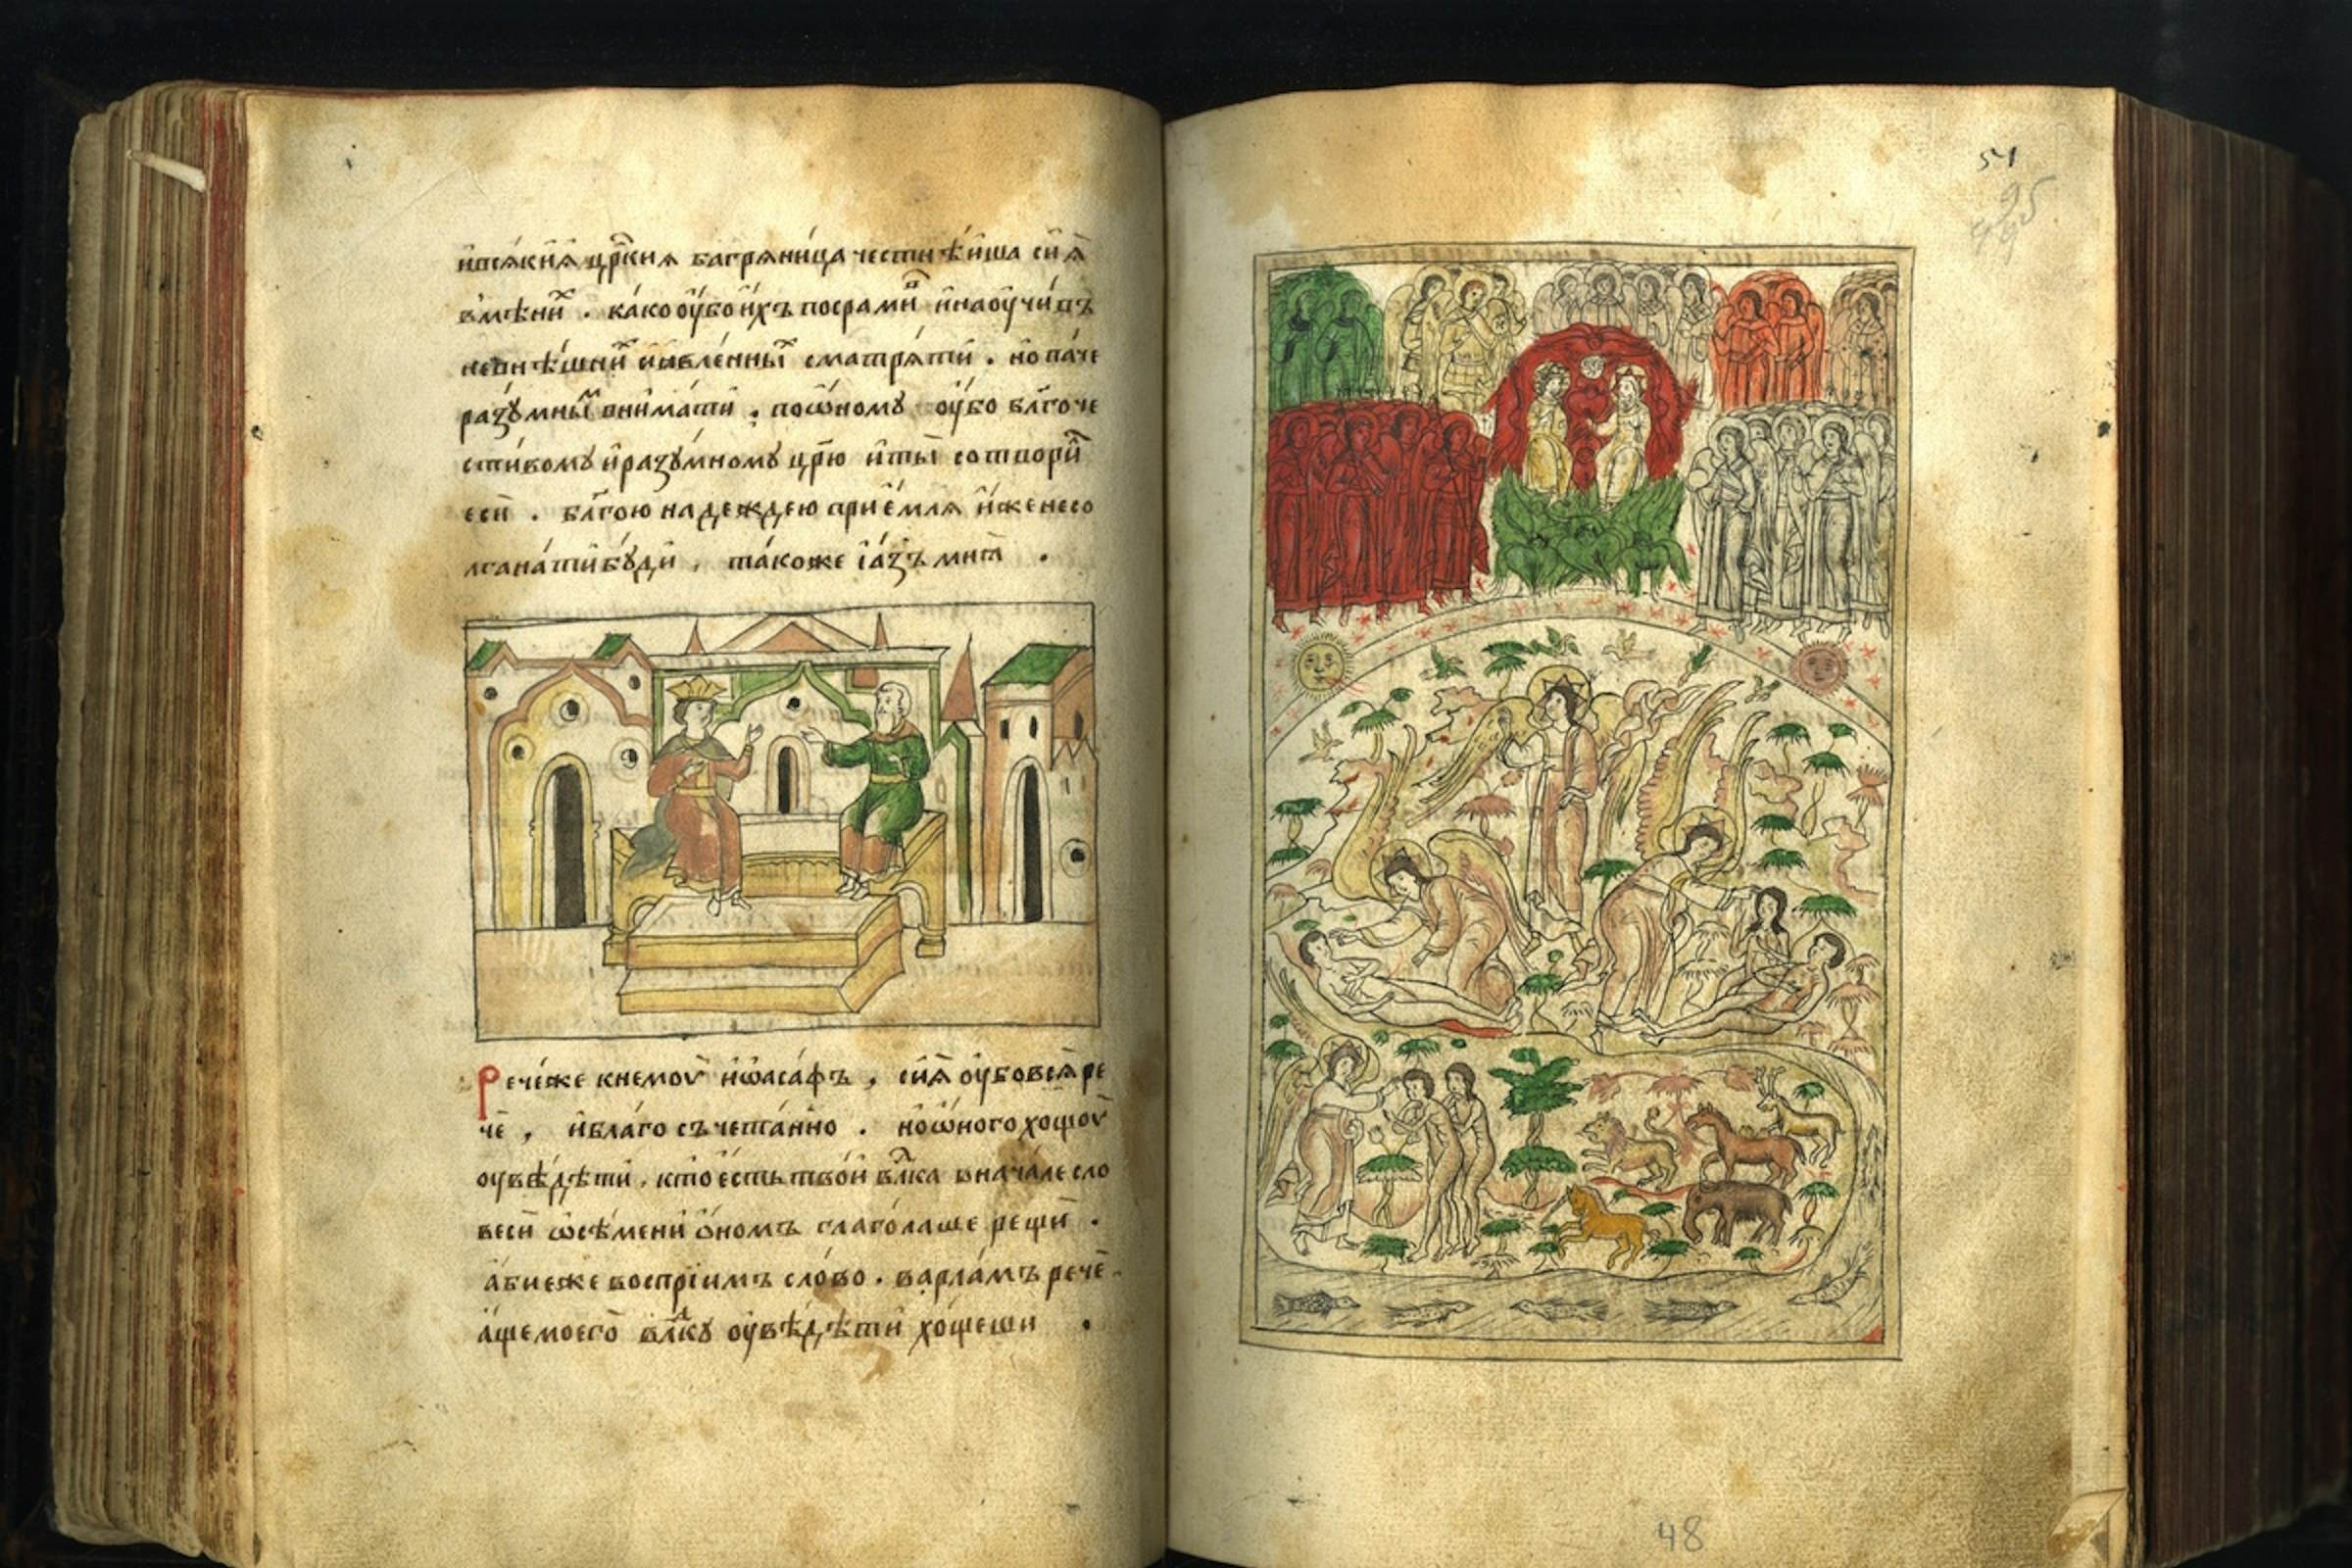 ився́кнїѧ црⷭ҇кнѧ багрѧни́ца честнѣ́йша сиѧ̀
вмѣни́ⷯ . ка́ко оу҆́бо и҆́хъ посрами́ⷡ҇ и҆ наоучи́въ
невнѣ́шниⷯ ꙗ҆вле́нныⷯ сматрѧ́ти . но па́че
разꙋмны́ⷨ внима́ти . поѡ҆́номꙋ оу҆́бо блг҃оче
сти́вомꙋ и҆ разꙋ́мномꙋ црю҃ и҆ ты̀ сотвори́ⷧ҇
есѝ . блг҃ою наде́ждею прие́млѧ и҆́же несо
лгана́ ти бꙋ́ди , та́коже і҆ а҆́зъ мни́т .
Рече́же кнемоу̀ и҆ѡаса́фъ , сиѧ̀ оу҆́бо всѧ̀ ре
чѐ , и҆ бла́го съчета́нно . но ѡ҆́ного хощоу̀
оувѣ́дѣти , кто̀ е҆́сть тво́й влⷣка внача́ле сло
весѝ ѡсѣ́мени ѻ҆́номъ глаго́лаше рещѝ .
а҆́бнеже воспрїи́мъ сло́во . варла́мъ речѐ .
а҆́ще моего̀ влⷣкꙋ оувѣ́дѣти хо́щеши .
51
95
48